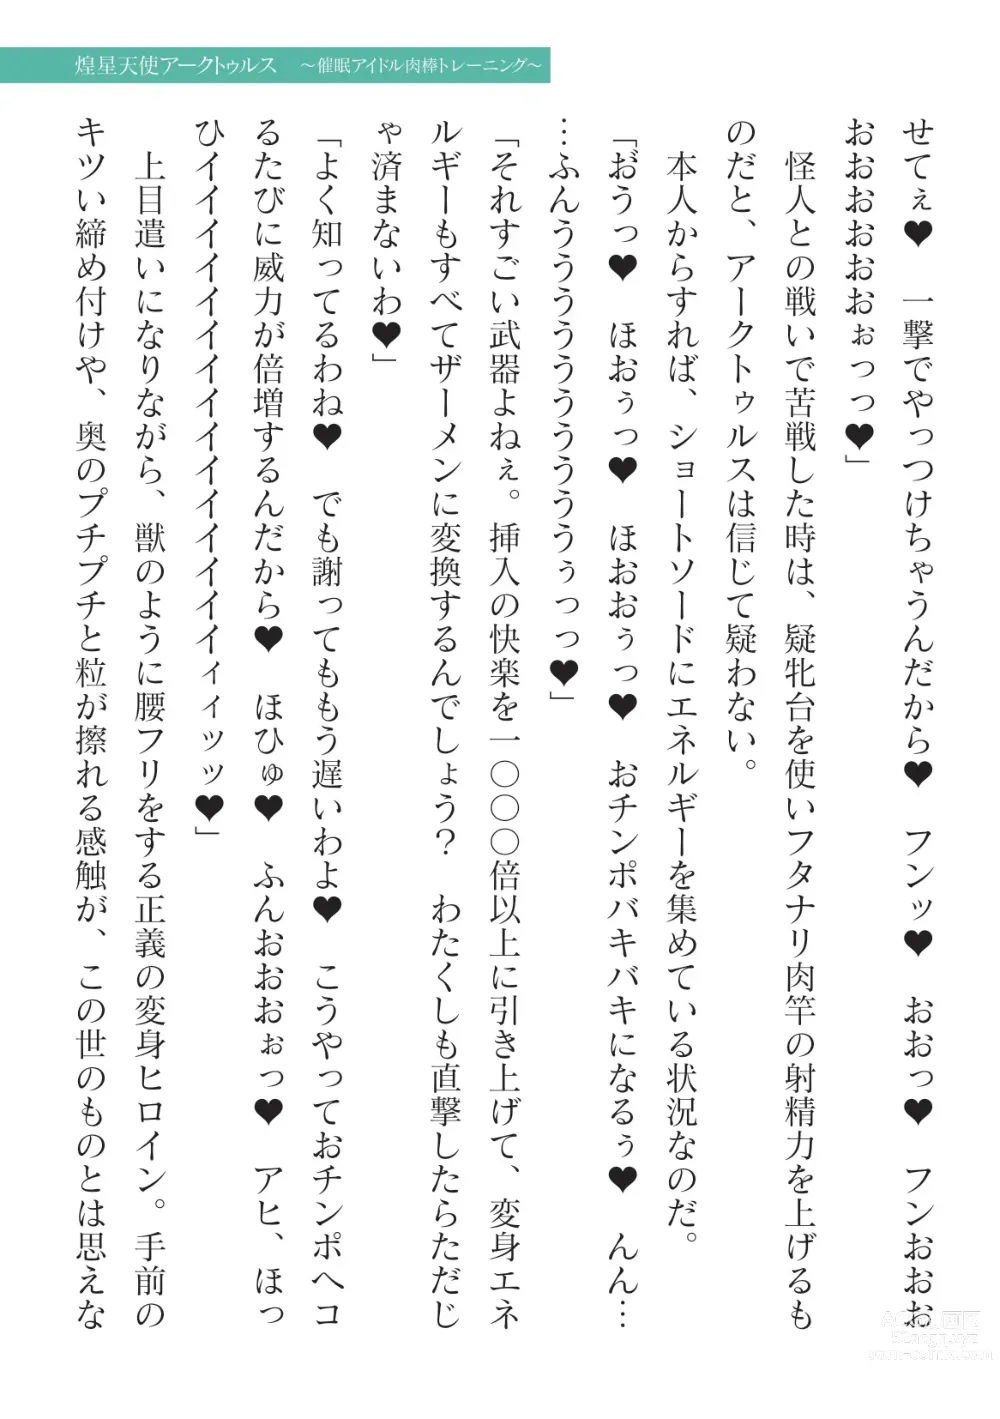 煌星天使アークトゥルス　～催眠アイドル肉棒トレーニング～
せてぇ♥　一撃でやっつけちゃうんだから♥　フンッ♥　おおっ♥　フンおおお
おおおおおおぉっっ♥」
　怪人との戦いで苦戦した時は、疑牝台を使いフタナリ肉竿の射精力を上げるも
のだと、アークトゥルスは信じて疑わない。
　本人からすれば、ショートソードにエネルギーを集めている状況なのだ。
「お゙うっ♥　ほおぅっ♥　ほおおぅっ♥　おチンポバキバキになるぅ♥　んん…
…ふんうううううううううぅっっ♥」
「それすごい武器よねぇ。挿入の快楽を一〇〇〇倍以上に引き上げて、変身エネ
ルギーもすべてザーメンに変換するんでしょう？　わたくしも直撃したらただじ
ゃ済まないわ♥」
「よく知ってるわね♥　でも謝ってももう遅いわよ♥　こうやっておチンポヘコ
るたびに威力が倍増するんだから♥　ほひゅ♥　ふんおおおぉっ♥　アヒ、ほっ
ひイイイイイイイイイイイイイイィィッッ♥」
　上目遣いになりながら、獣のように腰フリをする正義の変身ヒロイン。手前の
キツい締め付けや、奥のプチプチと粒が擦れる感触が、この世のものとは思えな